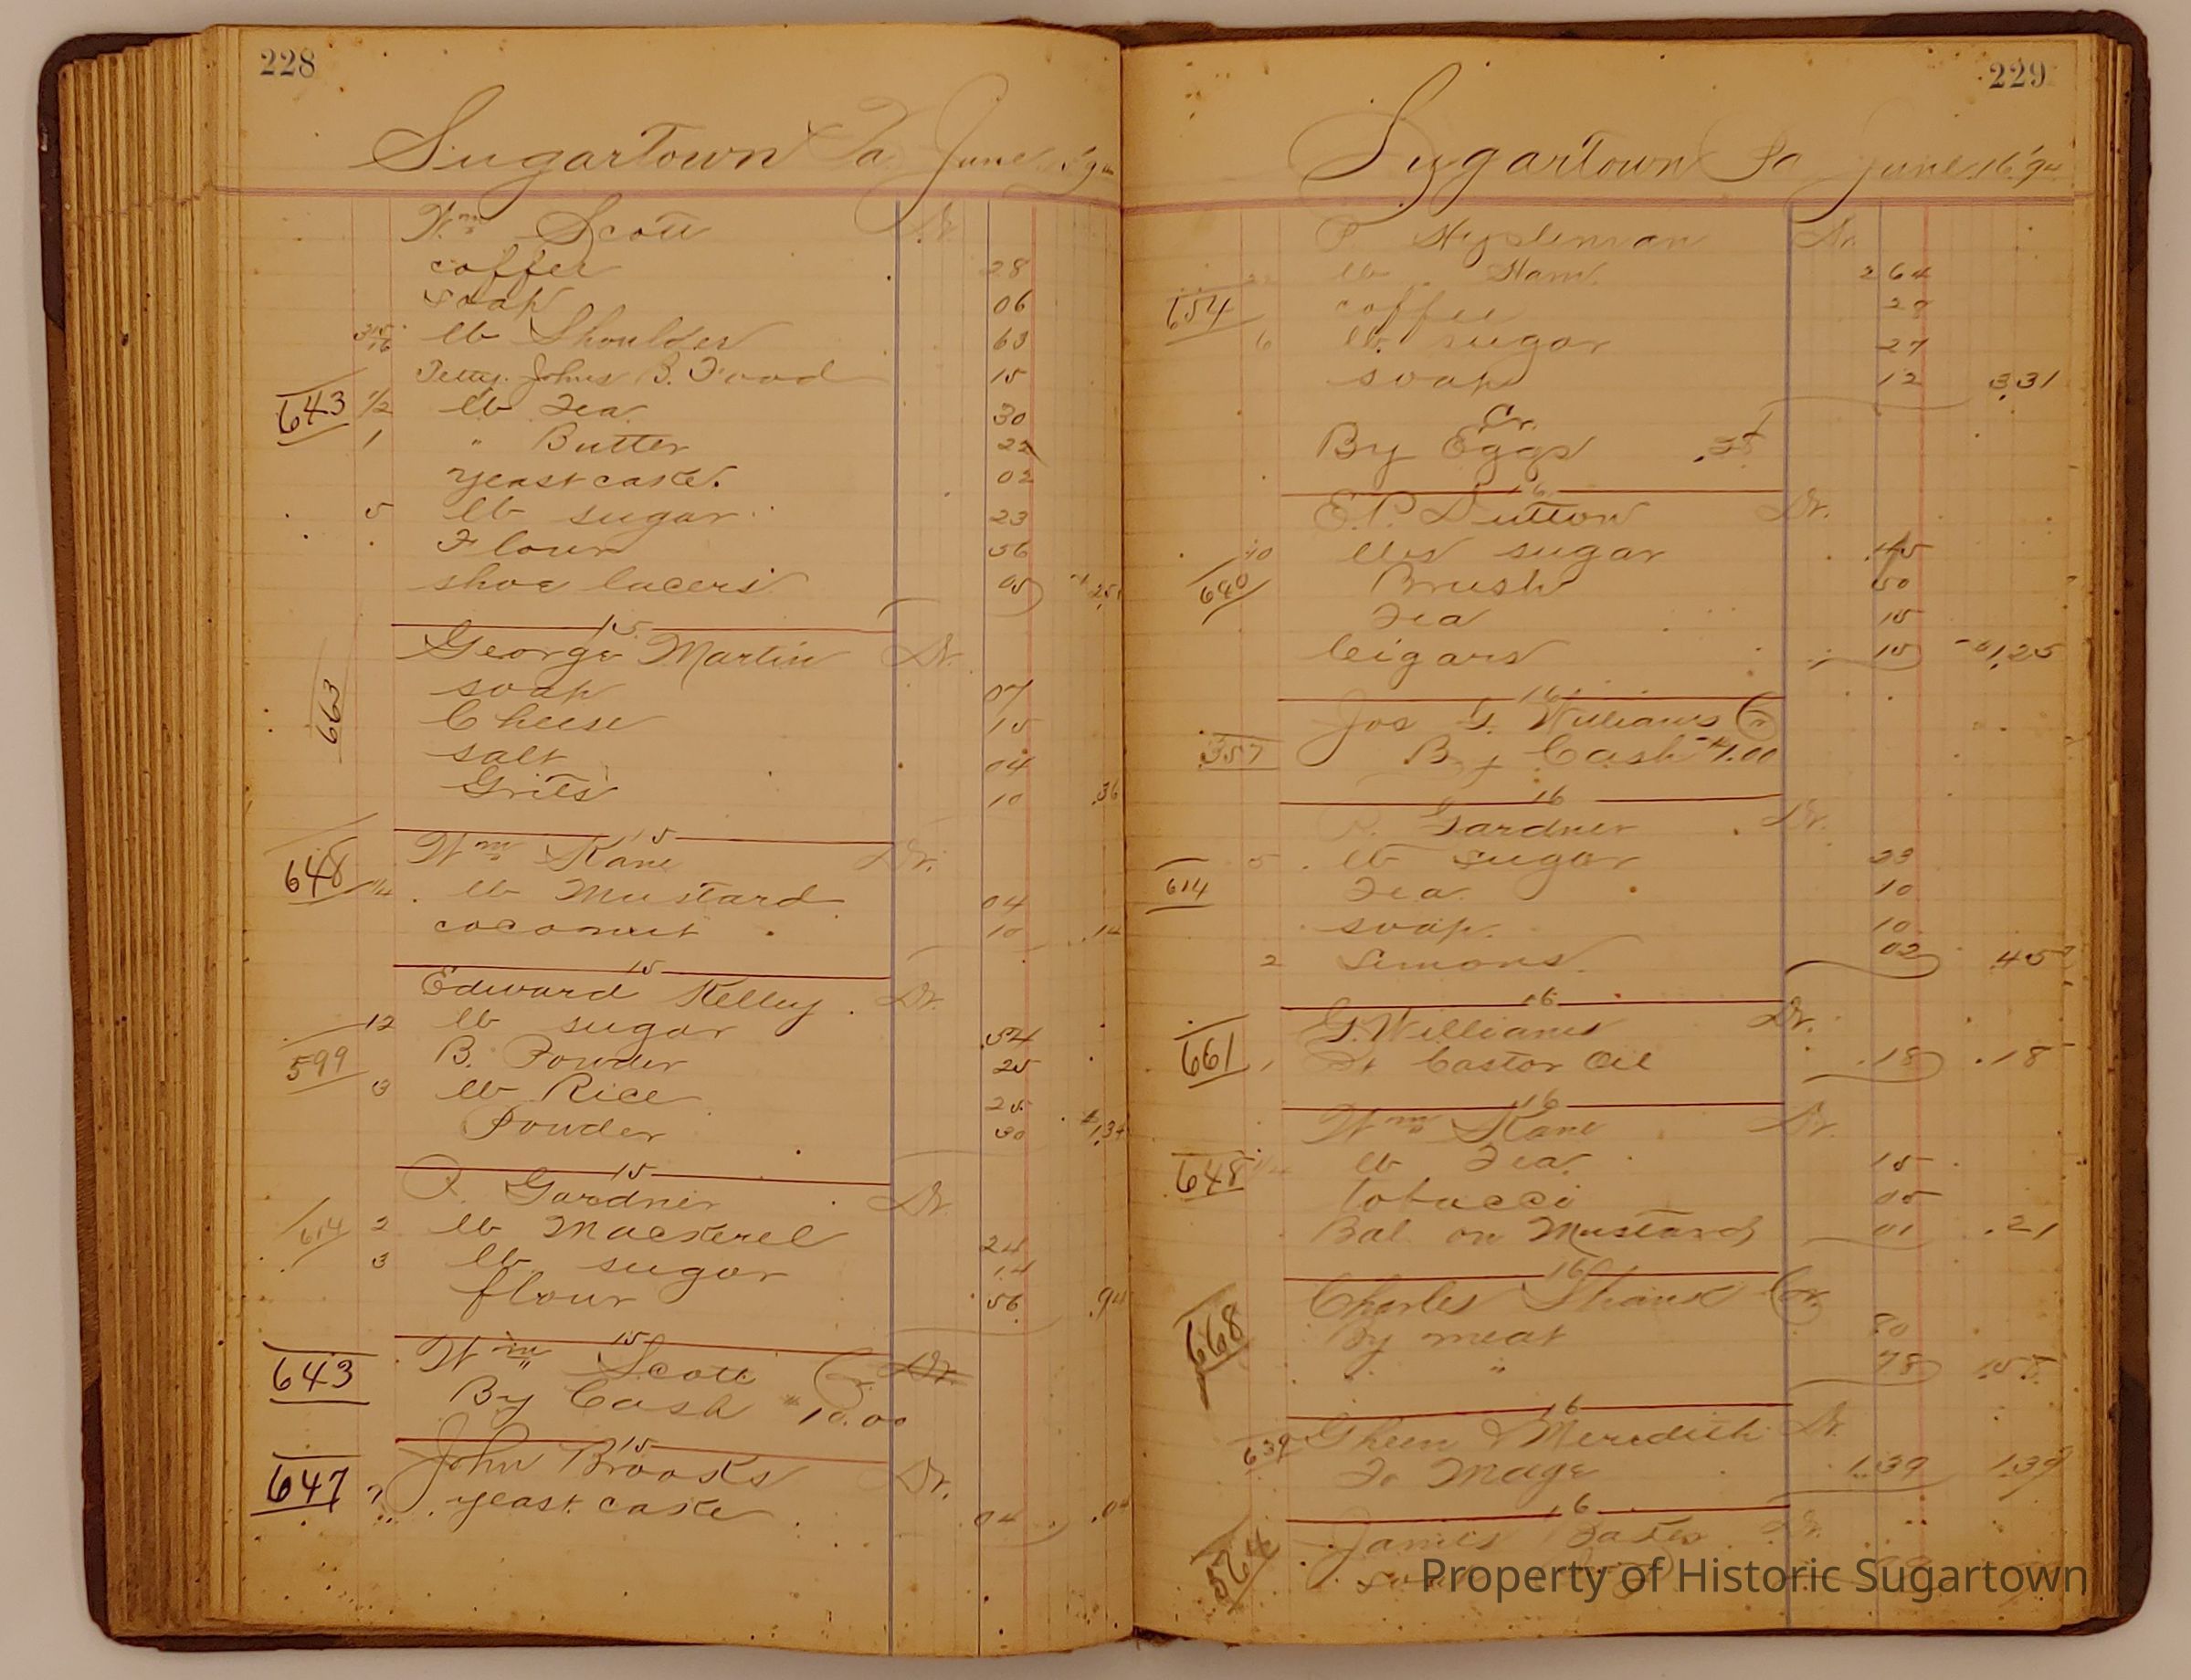 228
Sugartown Pa June 15 94
Wm Scott Dr
coffee 28
soap 06
3 15/16 lb Shoulder 63
Johns B. Food 15
643 1/2 lb Tea 30
1 " Butter 22
yeast cake. 02
5 lb sugar 23
Flour 56
shoe lacers 05
15
George Martin Dr.
663
soap 07
Cheese 15
salt 04
Grits 10 .36
15
Wm Kane Dr.
648 1/4 lb Mustard 04
cocoanut 10 .14
15
Edward Kelley Dr.
12 lb sugar .54
599 B. Powder 25
3 lb Rice 25
Powder 30 1.34
15
R. Gardner Dr.
614 2 lb Mackerel 24
3 lb sugar 14
flour 56 .94
15
643 Wm Scott Cr. Dr.
By Cash 10.00
15
John Brooks Dr.
647 2 yeast cake 04 .04
229
Sugartown Pa June 16 '94
P. Dr.
lb Ham. 2 64
654 coffee 28
6 lb. sugar 27
soap 12 3.31
Cr.
By Eggs
16
E. P. Dutton Dr.
10 lbs sugar .45
640 Brush 50
Tea 15
Cigars 15 1.25
16
Jos T. Williams Cr
357 By Cash 1.00
16
R. Gardner Dr.
5 lb sugar 23
614 Tea 10
soap. 10
2 Lemons. 02 .45
16
G. Williams Dr.
661 1 Pt Castor Oil .18 .18
16
Wm Kane Dr.
648 lb Tea. 15
tobacco 05
Bal on Mustard 01 .21
16
668 Charles Shank Cr.
By meat 80
" 78 1.58
16
639 Gheen & Meredith Dr.
To Mdge 1.39 1.39
16
564 James Bates Dr.
Property of Historic Sugartown